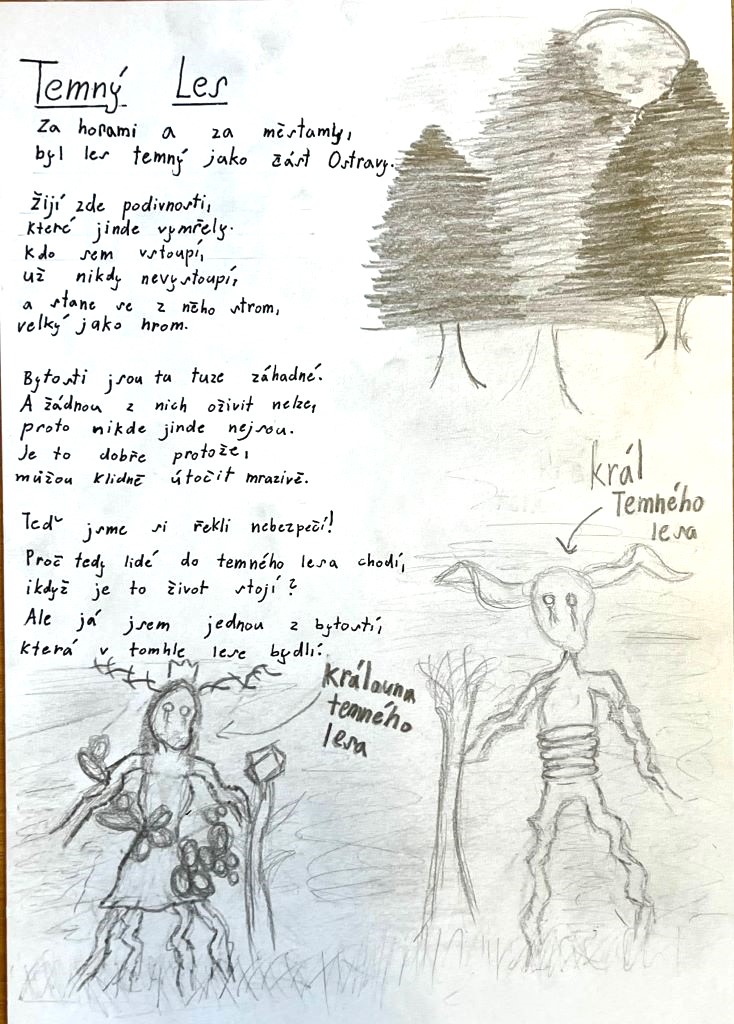 Temný Les
Za horami a za městamy,
byl les temný jako část Ostravy.
Žijí zde podivnosti,
které jinde vymřely.
Kdo sem vstoupí,
už nikdy nevystoupí,
a stane se z něho strom,
velký jako hrom.
Bytosti jsou tu tuze záhadné.
A žádnou z nich oživit nelze,
proto nikde jinde nejsou.
Je to dobře protože,
můžou klidně útočit mrazivě.
Teď jsme si řekli nebezpečí!
Proč tedy lidé do temného lesa chodí,
ikdyž je to život stojí?
Ale já jsem jednou z bytostí,
která v tomhle lese bydlí.
král
Temného
lesa
královna
temného
lesa